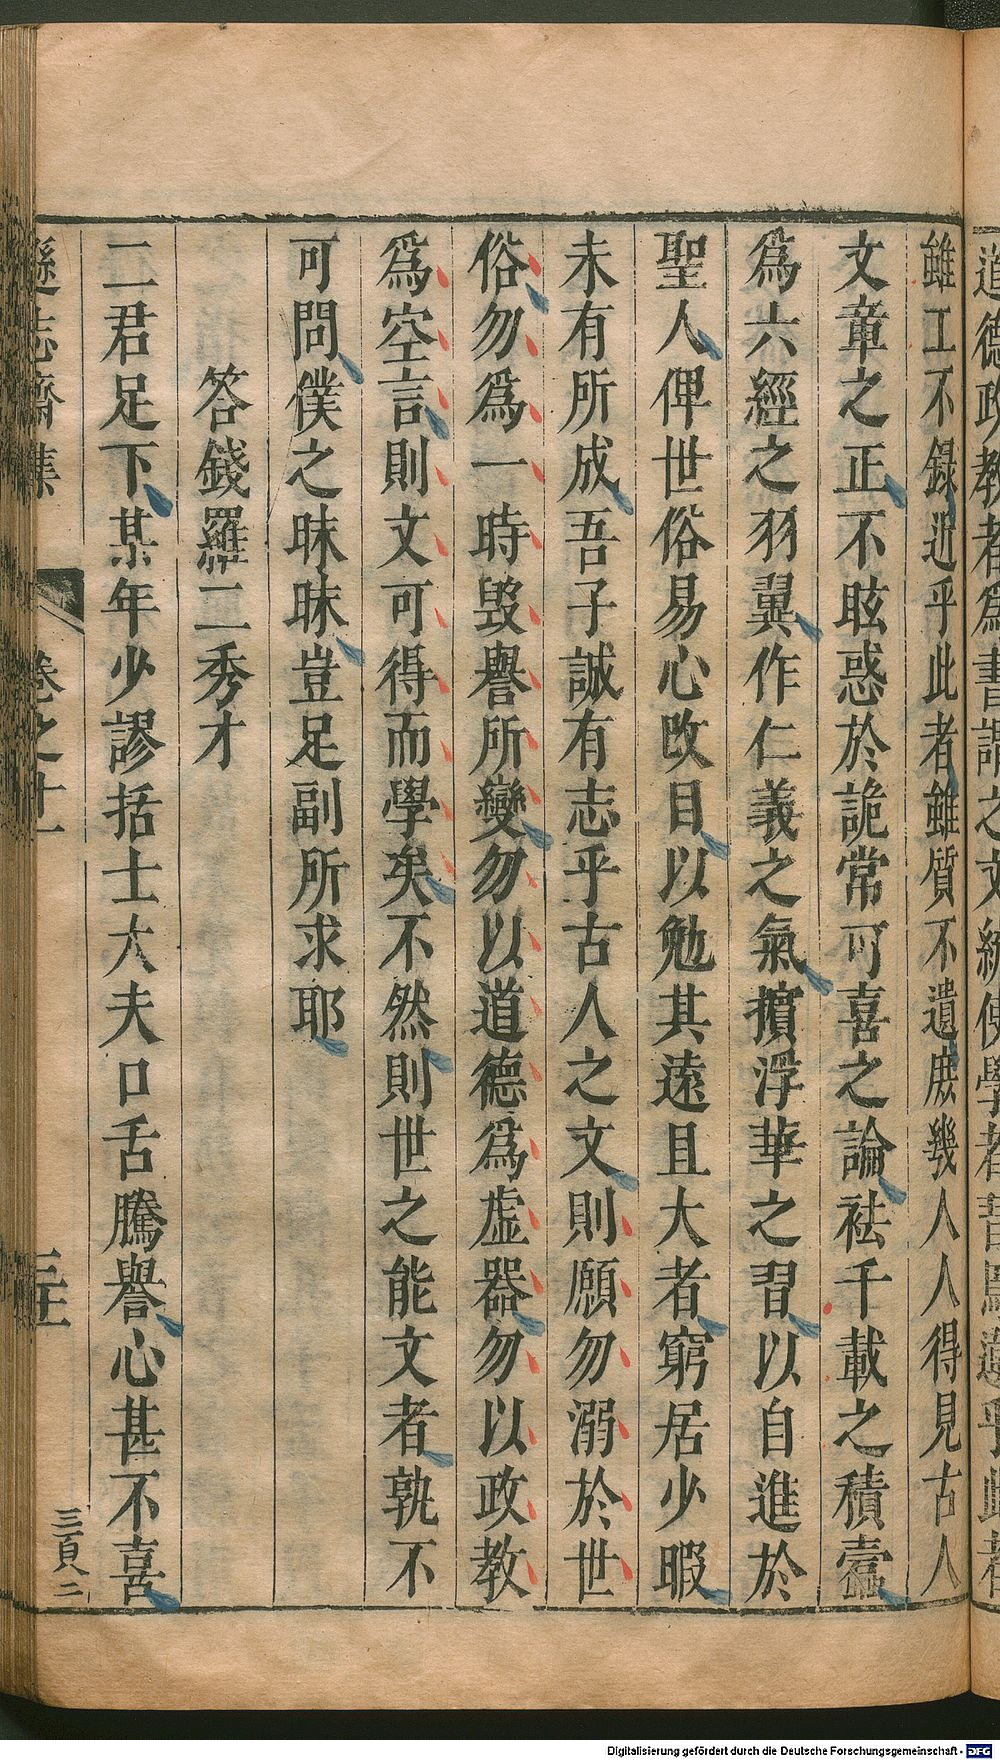 道德政教者爲書謂之文統使學者昔馬遷乎此者
雖工不錄近乎此者雖質不遺庶幾人人得見古人
文章之正不眩惑於詭常可喜之論祛千載之積蠹
爲六經之羽翼作仁義之氣擯浮華之習以自進於
聖人俾世俗易心改目以勉其遠且大者窮居少暇
未有所成吾子誠有志乎古人之文則願勿溺於世
俗勿爲一時毀譽所變勿以道德爲虛器勿以政教
爲空言則文可得而學矣不然則世之能文者孰不
可問僕之昧昧豈足副所求耶
答錢羅二秀才
二君足下某年少謬括士大夫口舌騰譽心甚不喜
遜志齋集 卷之十一 三頁二
Digitalisierung gefördert durch die Deutsche Forschungsgemeinschaft - DFG